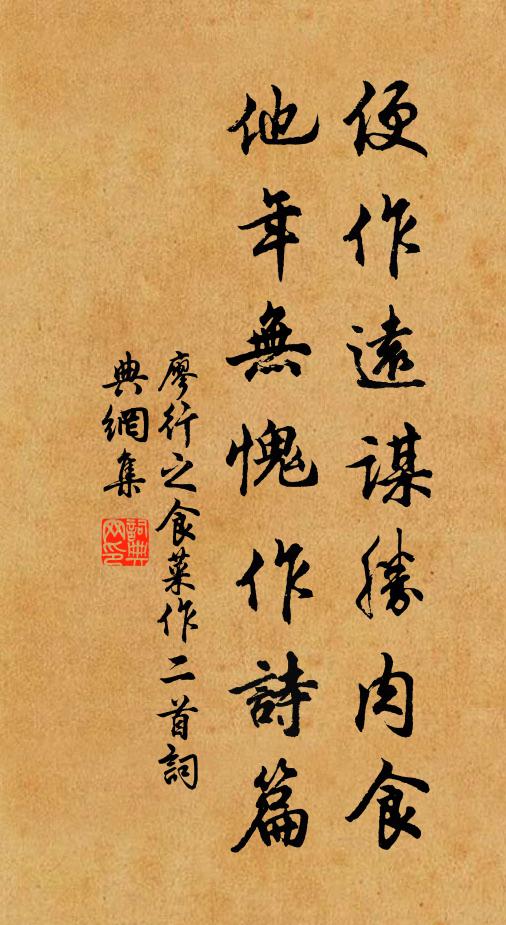 便作遠謀勝肉食
他年無愧作詩篇
廖行之食菜作二首詞
典網集
詞典网印